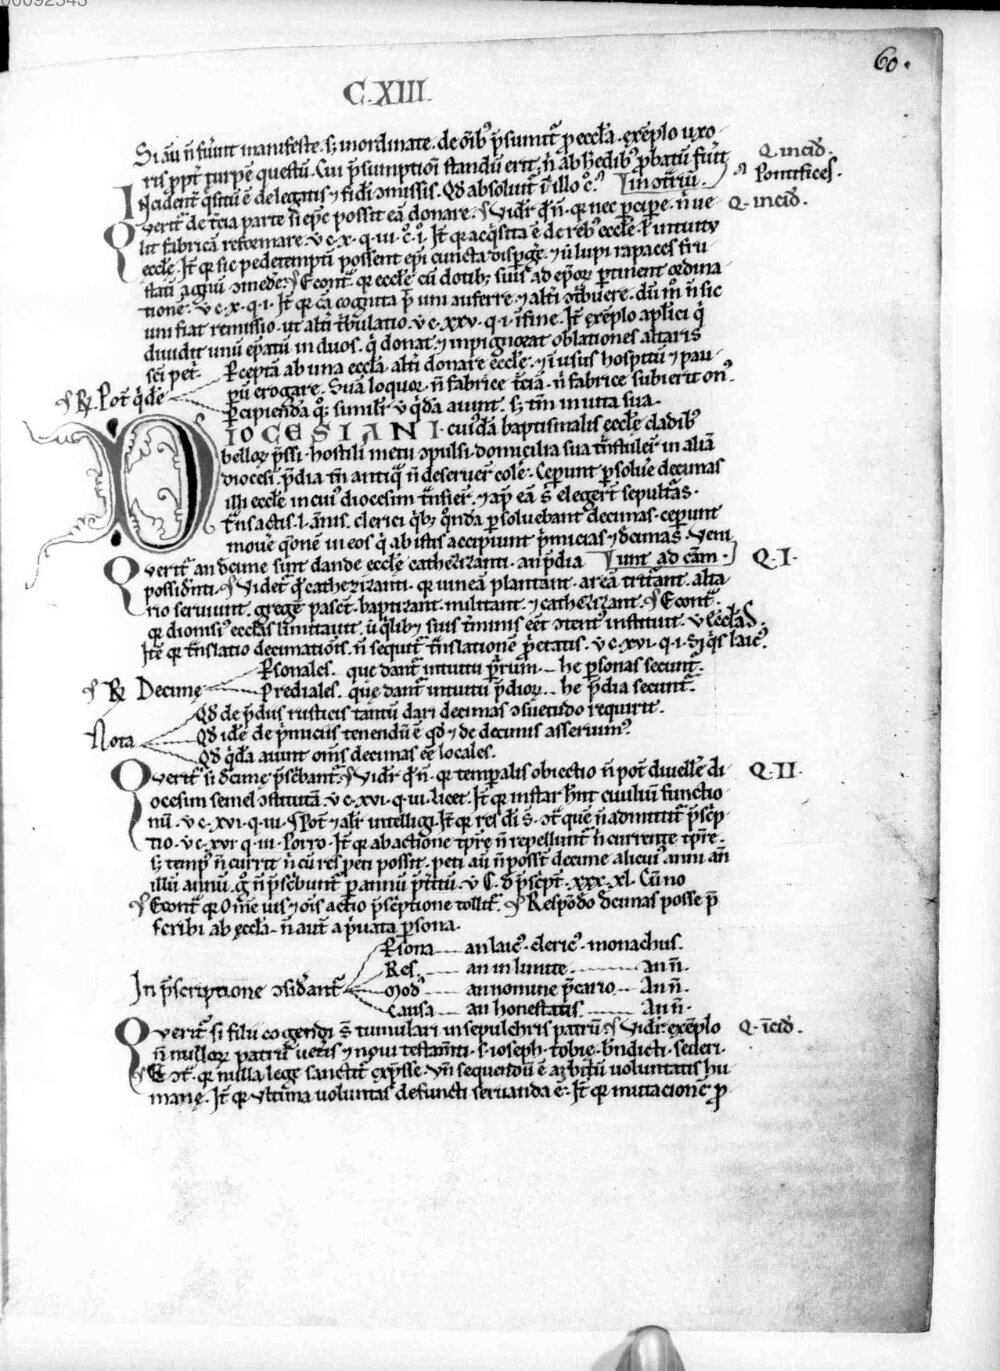 00092543
60.
C.XIII.
Si aū n̄ fuīnt manifeste. s; inordinate. de oīb; p̄sumit᷑ p eccl̄a. exēplo uxo-
ris ppt᷑ turpē questū. Cui p̄sumptioī standū erit, n̄ ab hedib; pbatū fuit
Incident᷑ q̄situ ē de legatis ⁊ fidei omissis. Qd absoluit᷑ Q. incid. Pontifices.
Querit᷑ de t̄cia parte si epc possit eā donare. Vidr̄ qn̄. qr nec pcipe. n̄ ue- Q. incid.
lit fabricā reformare. v c. x. q. iii. c. i. It᷑ qr acq̄sita ē de reb; eccl̄e. ł intuitu
eccl̄e. It᷑ qr sic pedetemptī possent ep̄i cuncta disp̄gē. ⁊ ii lupi rapaces fru
stati agnū omedē. Econt᷑ qr eccl̄e cū dotib; suis ad ep̄or ptinent ordina
tionē. v c. x. q. i. It᷑ qr cā cognita p̄ uni auferre. ⁊ alti tribuere. dū m° n̄ sic
uni fiat remissio. ut alti t̄bulatio. v c. xxv. q. i. īfine. It᷑ exēplo apl̄ici q̄
diuidit unū ep̄atū in duos. q̄ donat. ⁊ impignorat oblationes altaris
sc̄i pet᷑. Perceptā ab una eccl̄a. alti donare eccl̄e. ⁊ ī usus hospitū ⁊ pau-
R. Pot᷑ q̄de pū erogare. Suā loquor. n̄ fabrice t̄ciā. n̄ fabrice subierit on'.
pcipiendā q°; simil'r v q̄dā aiunt. s; tm̄ in uita sua.
DIOCESIANI. cuiusdā baptismalis eccl̄e cladib;
bellor p̄ssi. hostili metu ɔpulsi. domicilia sua t̄nstuler᷑ in aliā
diocesī. p̄dia tn̄ antiq̄ n̄ deseruer᷑ colē. Ceperunt psoluē decimas
illi eccl̄e in cui' diocesim t̄nsier᷑. ⁊ ap̄ eā s̄ elegert sepult̄as.
t̄nsactis. l. ānis. clerici q̄b; qōnda psoluebant decimas. ceperunt
mouē q̄onē in eos q̄ ab istis accipiunt p̄micias ⁊ decimas. Veni
unt ad cām.
Querit᷑ an decime sint dande eccl̄e cathezizanti. an p̄dia Q. I.
possidēti. Videt᷑ q° cathezizanti. qr uineā plantant. areā tritant. alta
rio seruiunt. gregē pascēt. baptizant. militant. ⁊ cathezizant. Econt᷑
qr dionisi' eccl̄as limitauit. ⁊ q̄lib; suis t̄minis eēt ɔtent' instituit. v eccl̄as.
Itē qr t̄nslatio decimationis. n̄ sequit᷑ t̄nslationē p̄etatis. v c. xvi. q. i. Si q̄s laic'.
R Decime Personales. que dant᷑ intuitu p̄rum — he psonas secunt᷑.
Prediales. que dant᷑ intuitu p̄dior — he p̄dia secunt᷑.
Nota Qd de p̄diis rusticis tantū dari decimas ɔsuetudo requirit.
Qd idē de p̄miciis tenendū ē qd ⁊ de decimis asserium'.
Qd q̄dā aiunt oms decimas eē locales.
Querit᷑ si decime p̄sc̄bant᷑. Vidr̄ qn̄. qr temporalis obiectio n̄ pot᷑ diuelle di Q. II.
ocesim semel ɔstitutā. v c. xvi. q. iii. licet. It᷑ qr instar hn̄t ciuiliū functio
nū. v c. xvi. q. iii. Pot᷑ ⁊ alit᷑ intelligi. It᷑ qr res di s̄. ɔt᷑ que n̄ admittit᷑ p̄scp̄
tio. v c. xvi q. iii. Porro. It᷑ qr ab actione tpr̄e n̄ repellunt᷑ n̄ currente tpr̄e.
s; temp' n̄ currit n̄ cū res peti possit. peti aū n̄ possn̄t decime alicui' anni an̄
illū annū. g° n̄ p̄scbunt᷑ p annū p̄tītū. v C. d p̄sept᷑. xxx. xl. Cū no
Econt᷑ qr Omē uis ⁊ oīs actio p̄sc̄ptione tollit᷑. Respōdo decimas posse p̄
scribi ab eccl̄a. n̄ aut᷑ a p̄uata psona.
In p̄scriptione ɔsidant᷑ Persona — an laic'. cleric'. monachus.
Res — an in limite — An n̄.
Mod' — an nomine p̄cario — An n̄.
Causa — an honestatis — An n̄.
Querit᷑ si filii cogendi s̄ tumulari in sepulchris patrū. Vidr̄ exēplo Q. īcid.
n̄ nullor patrū uetis ⁊ noui testam̄ti. s. ioseph. tobie. bn̄dicti. seueri.
E ɔt᷑. qr nulla lege sanctit᷑ exp̄sse. Vn̄ sequendū ē arbit̄ū uoluntatis hu
mane. It᷑ qr ultima uoluntas defuncti seruanda ē. It᷑ qr mutacionē p